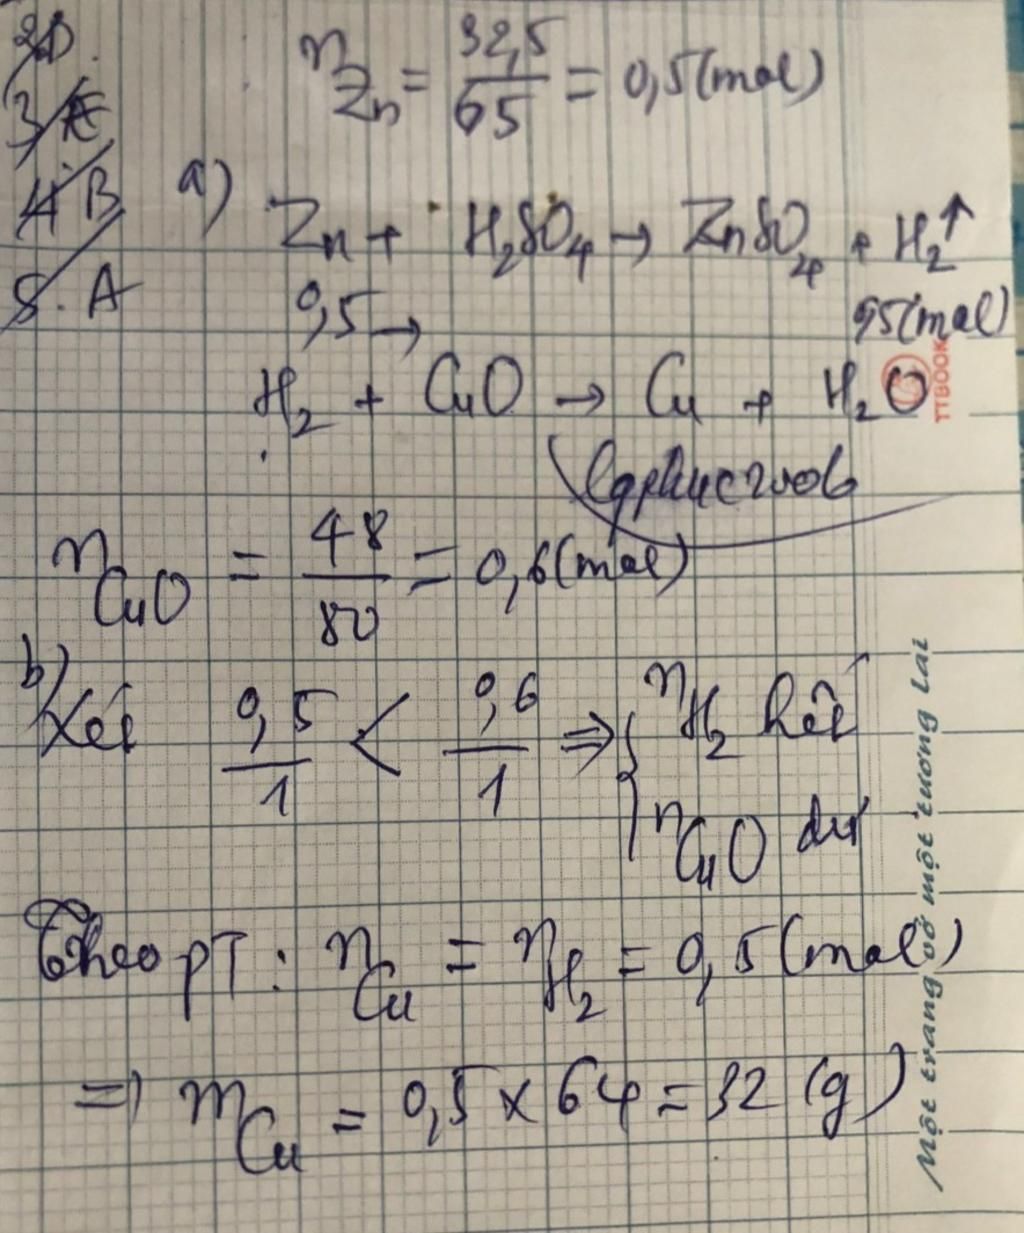 2D.
3/A
4/B
5. A
n Zn = 32,5/65 = 0,5(mol)
a) Zn + H₂SO₄ → ZnSO₄ + H₂↑
0,5 → 0,5(mol)
H₂ + CuO → Cu + H₂O
TTBOOK
n CuO = 48/80 = 0,6(mol)
b) Xét 0,5/1 < 0,6/1 ⇒ { n H₂ hết
n CuO dư
Theo PT: n Cu = n H₂ = 0,5(mol)
⇒ m Cu = 0,5 x 64 = 32 (g)
Một trang vở một tương lai